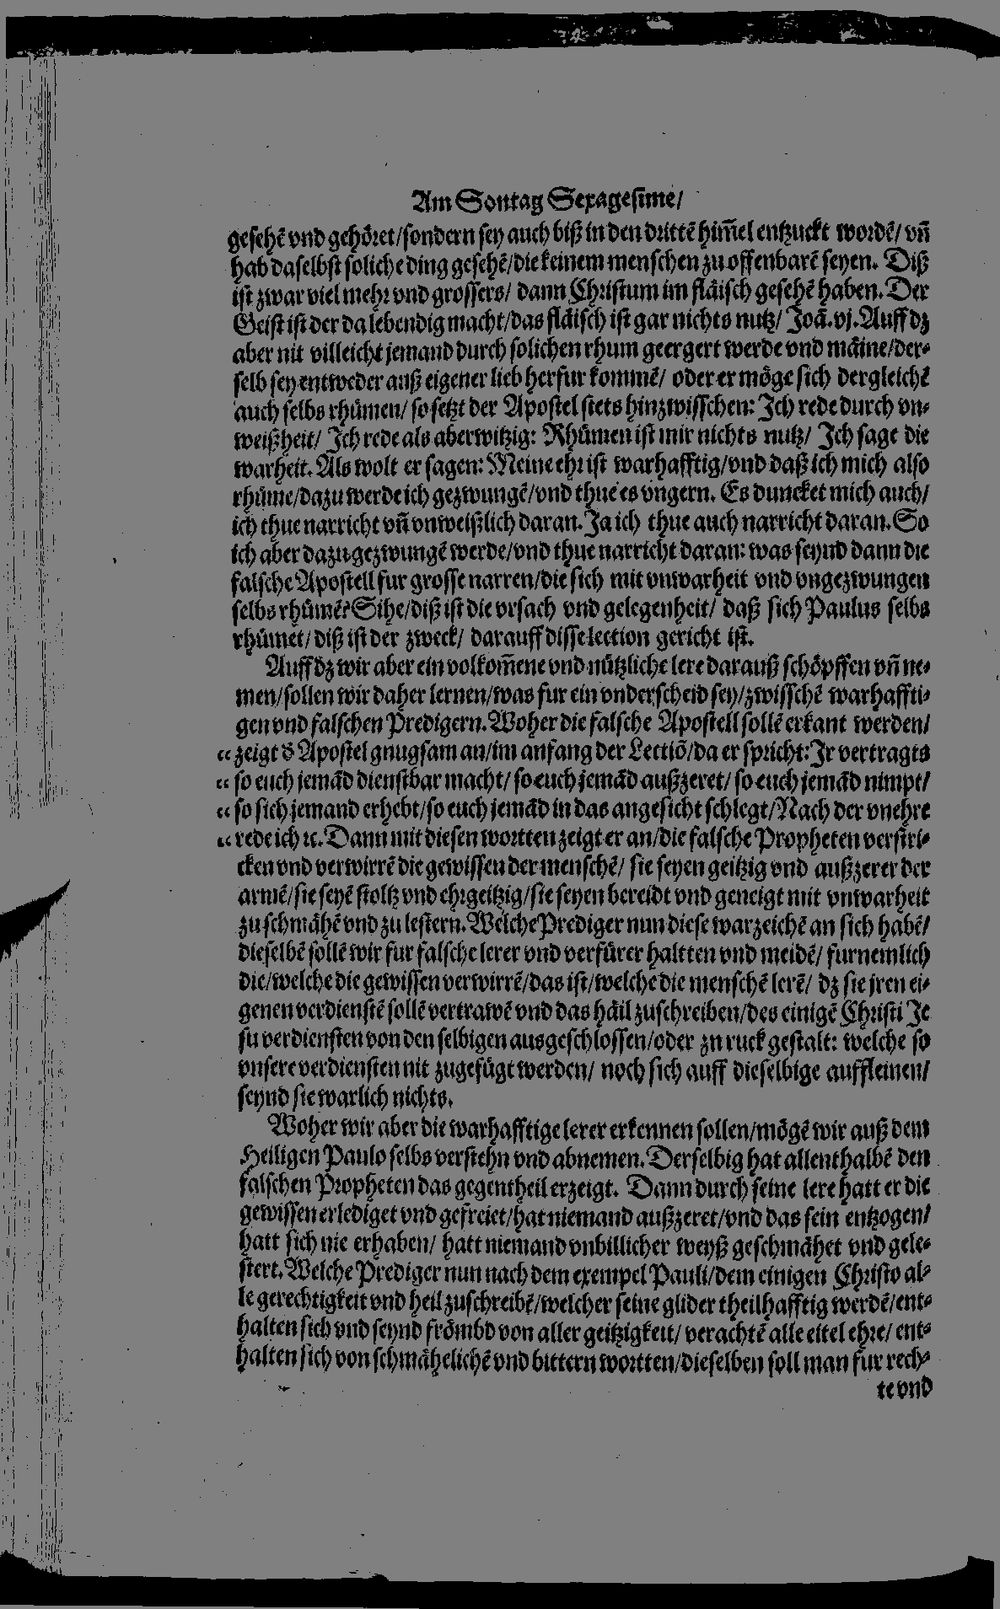 Am Sontag Sexagesime/
gesehẽ vnd gehöret/sondern sey auch biß in den drittẽ him̃el entzuckt wordẽ/ vñ
hab daselbst soliche ding gesehẽ/die keinem menschen zu offenbarẽ seyen. Diß
ist zwar viel mehr vnd grossers/ dann Christum im fläisch gesehẽ haben. Der
Geist ist der da lebendig macht/das fläisch ist gar nichts nutz/ Joã. vj. Auff dz
aber nit villeicht jemand durch solichen rhum geergert werde vnd mäine/der-
selb sey entweder auß eigener lieb herfur kommẽ/ oder er möge sich dergleichẽ
auch selbs rhümen/ so setzt der Apostel stets hinzwisschen: Ich rede durch vn-
weißheit/ Ich rede als aberwitzig: Rhümen ist mir nichts nutz/ Ich sage die
warheit. Als wolt er sagen: Meine ehr ist warhafftig/vnd daß ich mich also
rhüme/dazu werde ich gezwungẽ/vnd thue es vngern. Es duncket mich auch/
ich thue narricht vñ vnweißlich daran. Ja ich thue auch narricht daran. So
ich aber dazu gezwungẽ werde/vnd thue narricht daran: was seynd dann die
falsche Apostell fur grosse narren/die sich mit vnwarheit vnd vngezwungen
selbs rhümẽ? Sihe/diß ist die vrsach vnd gelegenheit/ daß sich Paulus selbs
rhümet/ diß ist der zweck/ darauff disse lection gericht ist.
Auff dz wir aber ein volkom̃ene vnd nützliche lere darauß schöpffen vñ ne-
men/sollen wir daher lernen/was fur ein vnderscheid sey/zwisschẽ warhaffti-
gen vnd falschen Predigern. Woher die falsche Apostell sollẽ erkant werden/
“ zeigt d' Apostel gnugsam an/im anfang der Lectiõ/da er spricht: Jr vertragts
“ so euch jemãd dienstbar macht/ so euch jemãd außzeret/ so euch jemãd nimpt/
“ so sich jemand erhebt/so euch jemãd in das angesicht schlegt/Nach der vnehre
“ rede ich ꝛc. Dann mit diesen wortten zeigt er an/die falsche Propheten verstri-
cken vnd verwirrẽ die gewissen der menschẽ/ sie seyen geitzig vnd außzerer der
armẽ/sie seyẽ stoltz vnd ehrgeitzig/sie seyen bereidt vnd geneigt mit vnwarheit
zu schmähẽ vnd zu lestern. Welche Prediger nun diese warzeichẽ an sich habẽ/
dieselbẽ sollẽ wir fur falsche lerer vnd verfürer haltten vnd meidẽ/ furnemlich
die/welche die gewissen verwirrẽ/das ist/welche die menschẽ lerẽ/ dz sie jren ei-
genen verdienstẽ sollẽ vertrawẽ vnd das häil zuschreiben/des einigẽ Christi Je
su verdiensten von den selbigen ausgeschlossen/oder zu ruck gestalt: welche so
vnsere verdiensten nit zugefügt werden/ noch sich auff dieselbige auffleinen/
seynd sie warlich nichts.
Woher wir aber die warhafftige lerer erkennen sollen/mögẽ wir auß dem
Heiligen Paulo selbs verstehn vnd abnemen. Derselbig hat allenthalbẽ den
falschen Propheten das gegentheil erzeigt. Dann durch seine lere hatt er die
gewissen erlediget vnd gefreiet/hat niemand außzeret/vnd das sein entzogen/
hatt sich nie erhaben/ hatt niemand vnbillicher weyß geschmähet vnd gele-
stert. Welche Prediger nun nach dem exempel Pauli/dem einigen Christo al-
le gerechtigkeit vnd heil zuschreibẽ/welcher seine glider theilhafftig werdẽ/ent-
halten sich vnd seynd frömbd von aller geitzigkeit/ verachtẽ alle eitel ehre/ ent-
halten sich von schmähelichẽ vnd bittern wortten/dieselben soll man fur rech-
te vnd